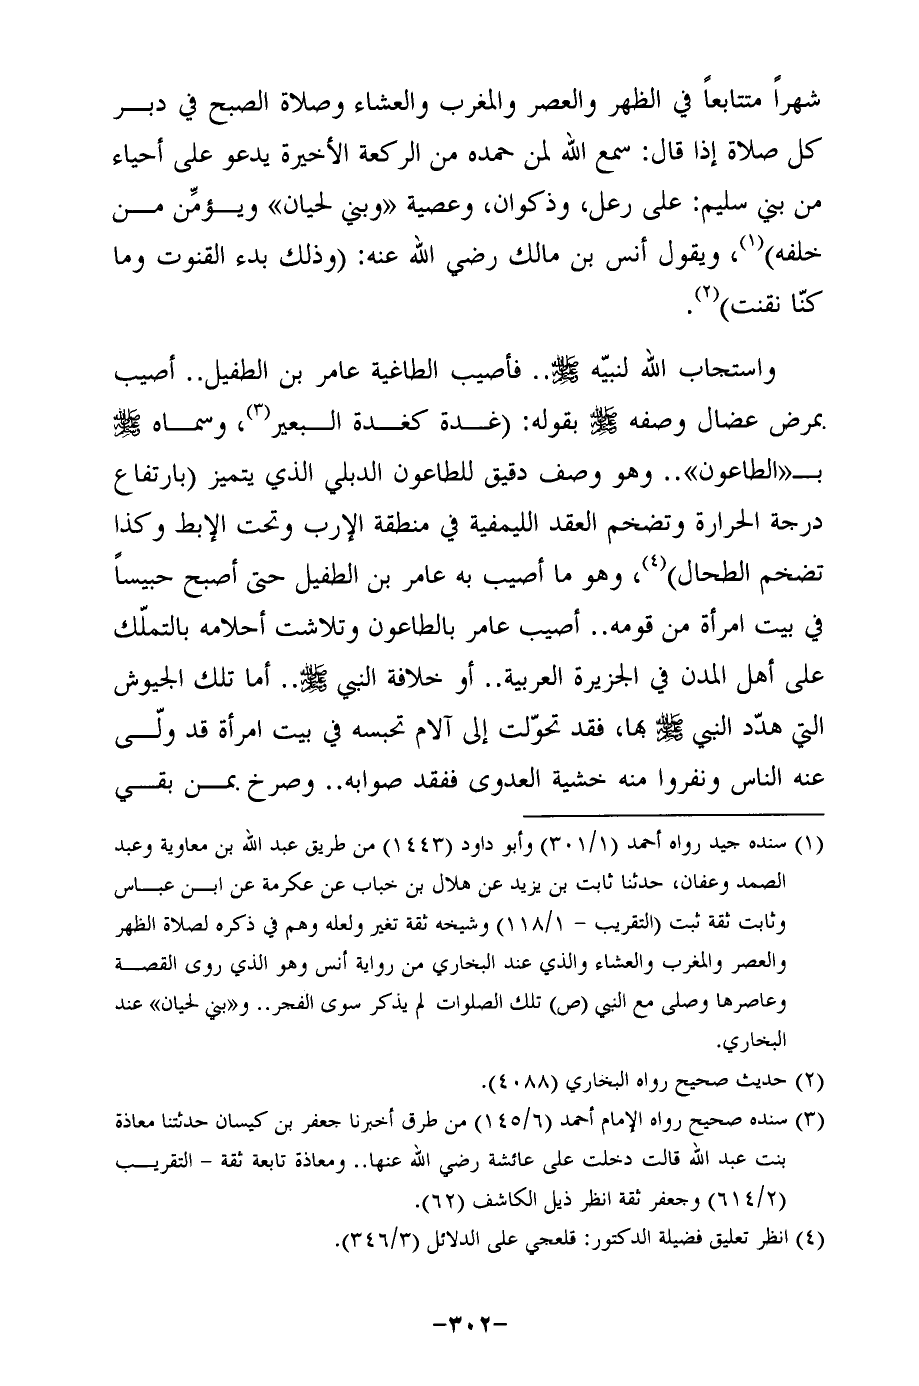 شهراً متتابعاً في الظهر والعصر والمغرب والعشاء وصلاة الصبح في دبـــر
كل صلاة إذا قال: سمع الله لمن حمده من الركعة الأخيرة يدعو على أحياء
من بني سليم: على رعل، وذكوان، وعصية «وبني لحيان» ويـــؤمِّن مـــن
خلفه)(١)، ويقول أنس بن مالك رضي الله عنه: (وذلك بدء القنوت وما
كنّا نقنت)(٢).
واستجاب الله لنبيّه ﷺ.. فأصيب الطاغية عامر بن الطفيل.. أصيب
بمرض عضال وصفه ﷺ بقوله: (غـــدة كغـــدة الـــبعير(٣)، وسمـــاه ﷺ
بــ«الطاعون».. وهو وصف دقيق للطاعون الدبلي الذي يتميز (بارتفاع
درجة الحرارة وتضخم العقد الليمفية في منطقة الإرب وتحت الإبط وكذا
تضخم الطحال)(٤)، وهو ما أصيب به عامر بن الطفيل حتى أصبح حبيساً
في بيت امرأة من قومه.. أصيب عامر بالطاعون وتلاشت أحلامه بالتملّك
على أهل المدن في الجزيرة العربية.. أو خلافة النبي ﷺ.. أما تلك الجيوش
التي هدّد النبي ﷺ بها، فقد تحوّلت إلى آلام تحبسه في بيت امرأة قد ولّـــى
عنه الناس ونفروا منه خشية العدوى ففقد صوابه.. وصرخ بمـــن بقـــي
(١) سنده جيد رواه أحمد (٣٠١/١) وأبو داود (١٤٤٣) من طريق عبد الله بن معاوية وعبد
الصمد وعفان، حدثنا ثابت بن يزيد عن هلال بن خباب عن عكرمة عن ابـــن عبـــاس
وثابت ثقة ثبت (التقريب - ١١٨/١) وشيخه ثقة تغير ولعله وهم في ذكره لصلاة الظهر
والعصر والمغرب والعشاء والذي عند البخاري من رواية أنس وهو الذي روى القصـــة
وعاصرها وصلى مع النبي (ص) تلك الصلوات لم يذكر سوى الفجر.. و«بني لحيان» عند
البخاري.
(٢) حديث صحيح رواه البخاري (٤٠٨٨).
(٣) سنده صحيح رواه الإمام أحمد (١٤٥/٦) من طرق أخبرنا جعفر بن كيسان حدثتنا معاذة
بنت عبد الله قالت دخلت على عائشة رضي الله عنها.. ومعاذة تابعة ثقة - التقريـــب
(٦١٤/٢) وجعفر ثقة انظر ذيل الكاشف (٦٢).
(٤) انظر تعليق فضيلة الدكتور: قلعجي على الدلائل (٣٤٦/٣).
-٣٠٢-